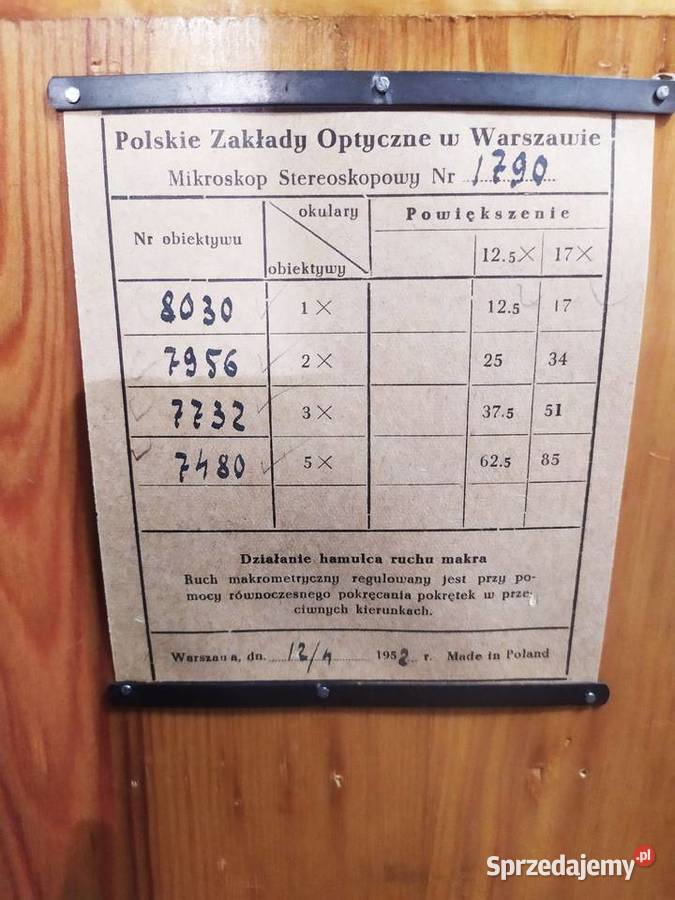 Polskie Zakłady Optyczne w Warszawie
Mikroskop Stereoskopowy Nr 1790
Nr obiektywu
okulary
obiektywy
Powiększenie
12.5× 17×
8030 1× 12.5 17
7956 2× 25 34
7732 3× 37.5 51
7480 5× 62.5 85
Działanie hamulca ruchu makra
Ruch makrometryczny regulowany jest przy po-
mocy równoczesnego pokręcania pokrętek w prze-
ciwnych kierunkach.
Warszawa, dn. 12/4 1952 r. Made in Poland
Sprzedajemy.pl